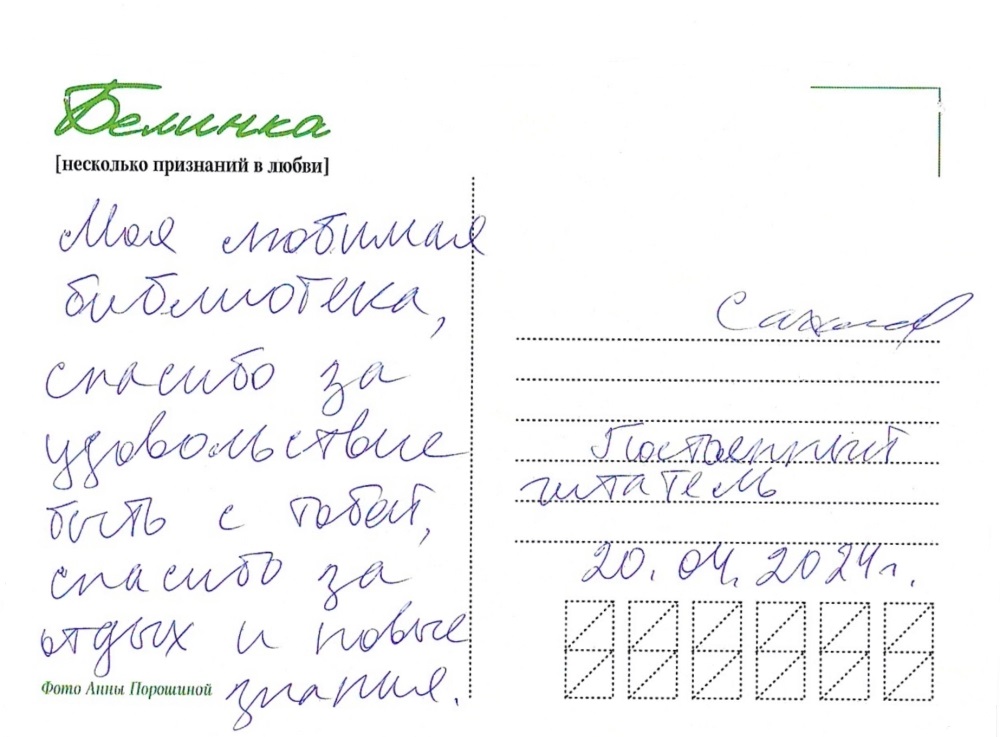 Белинка
[несколько признаний в любви]
Моя любимая
библиотека,
спасибо за
удовольствие
быть с тобой,
спасибо за
отдых и новые
знания.
Фото Анны Порошиной
Постоянный
читатель
20.04.2024г.